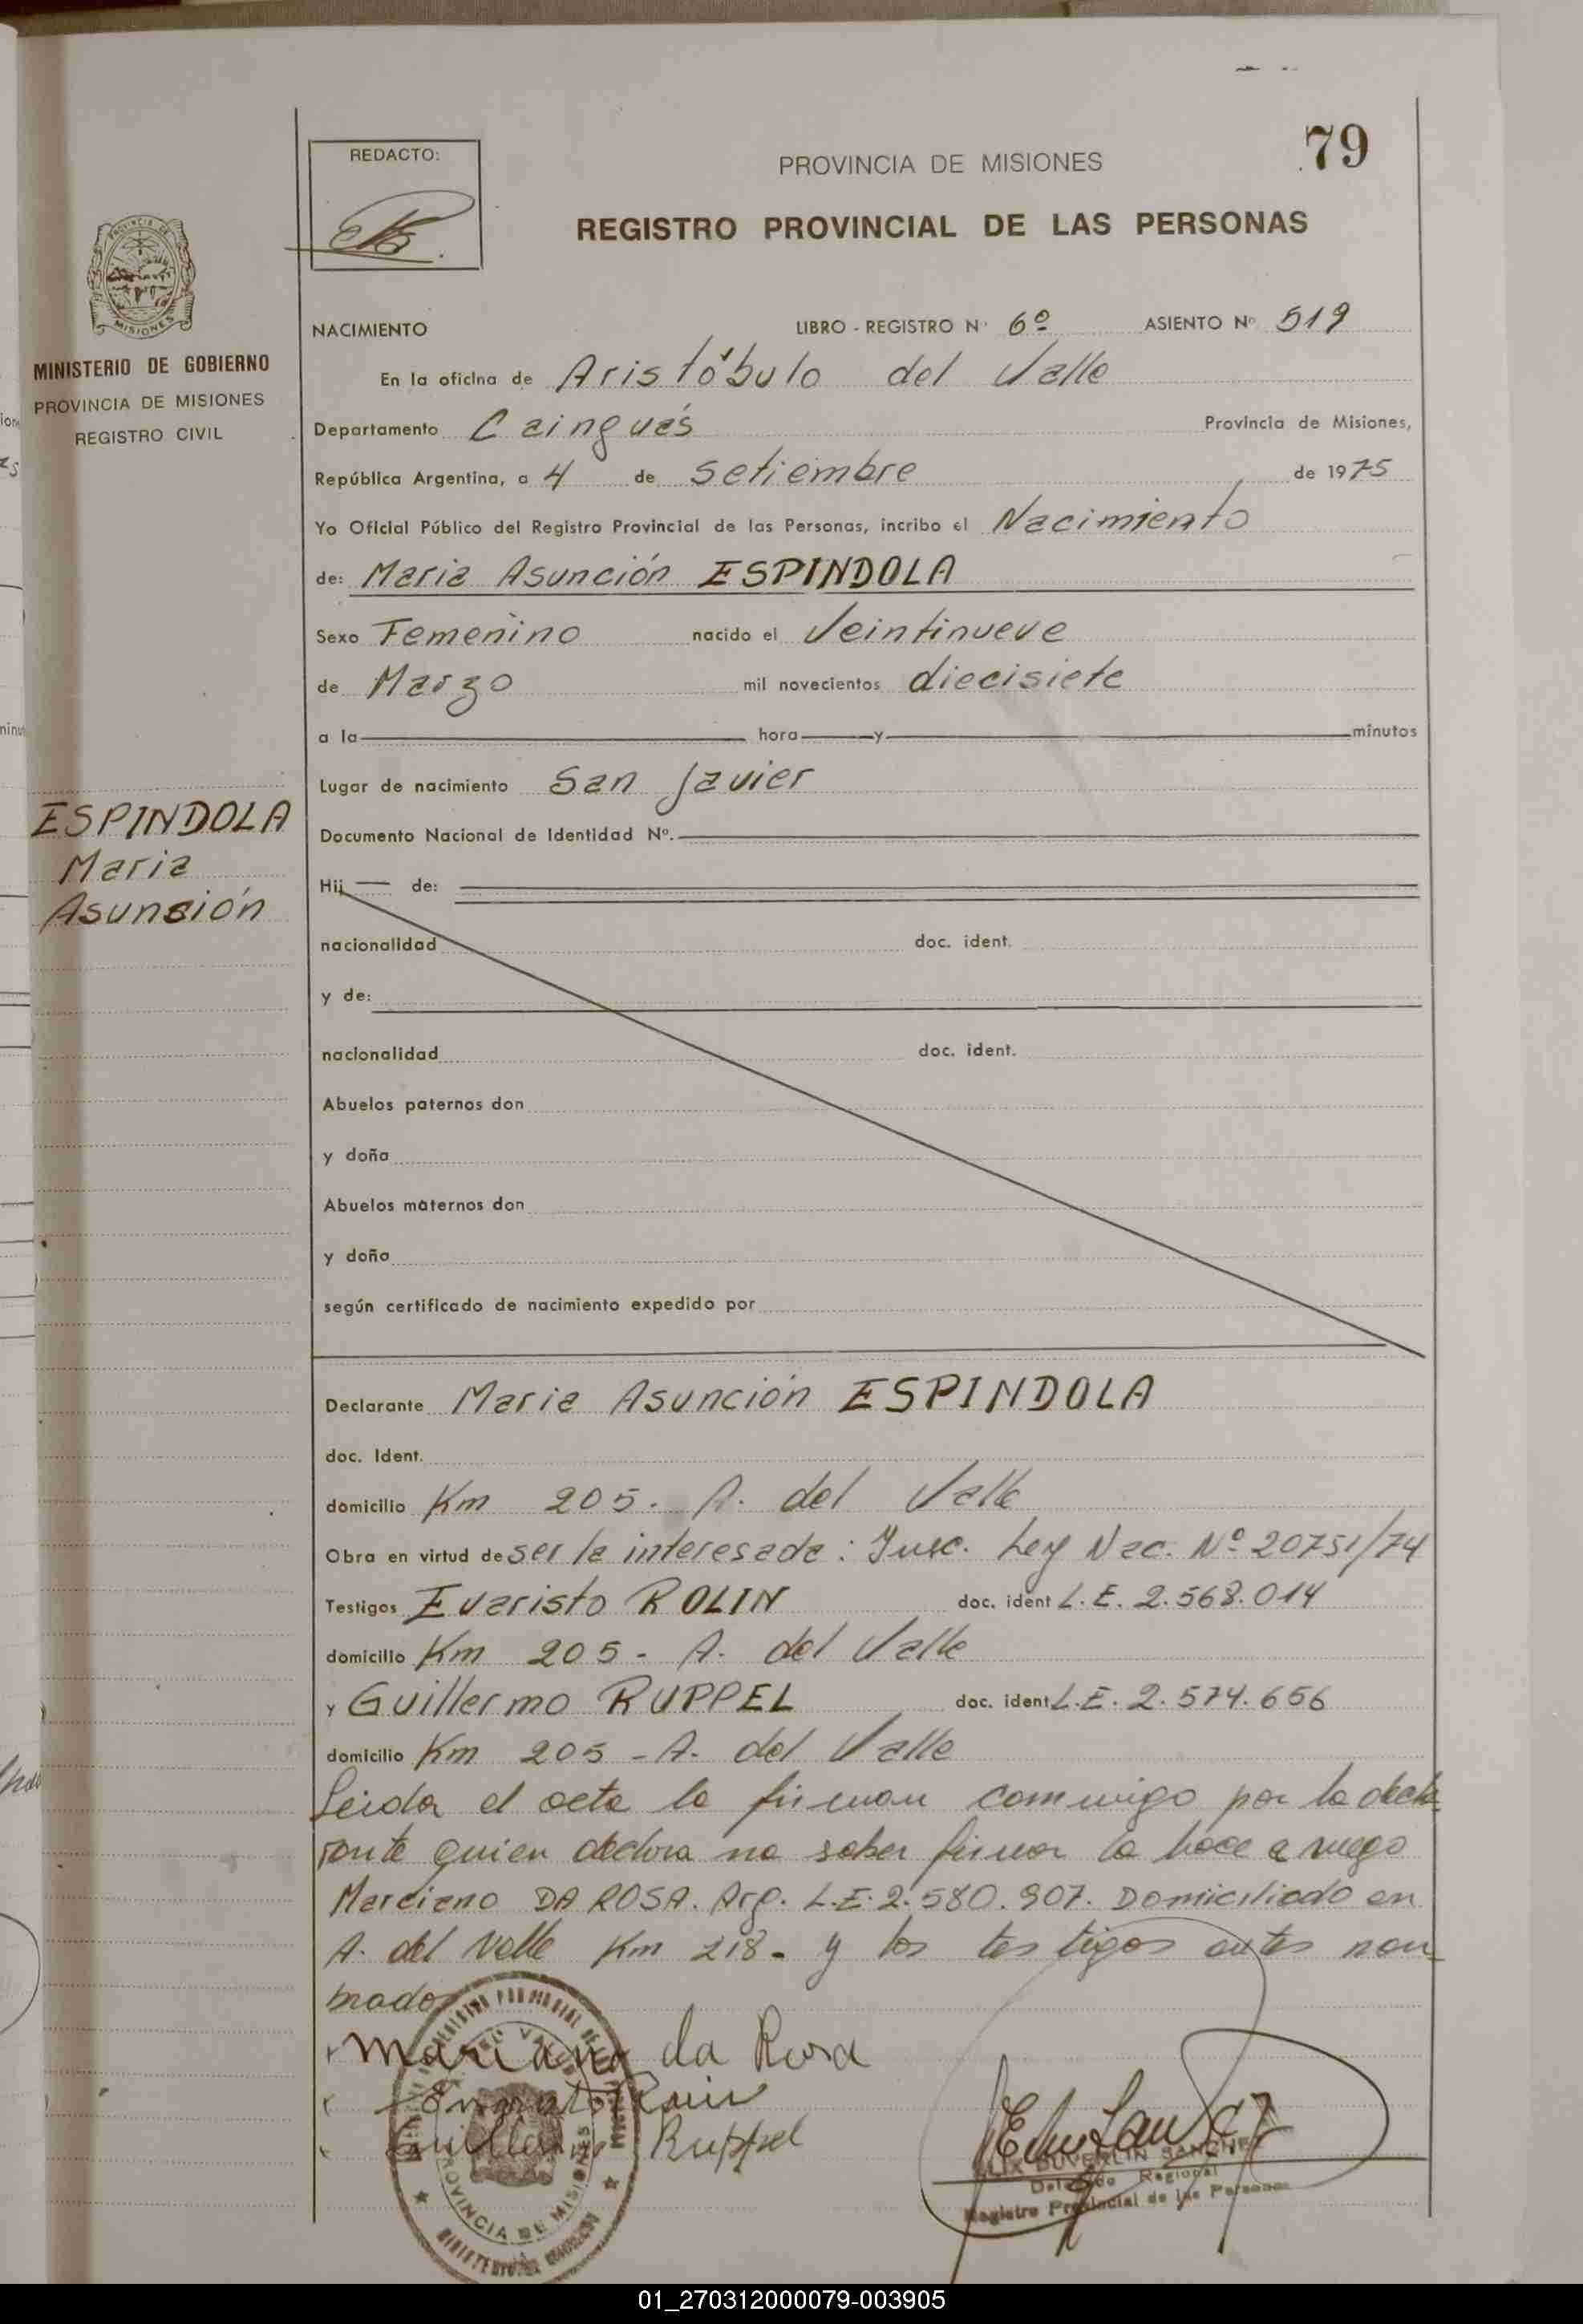 79
REDACTO:
PROVINCIA DE MISIONES
REGISTRO PROVINCIAL DE LAS PERSONAS
MISIONES
MINISTERIO DE GOBIERNO
PROVINCIA DE MISIONES
REGISTRO CIVIL
NACIMIENTO LIBRO - REGISTRO Nº 6º ASIENTO Nº 519
En la oficina de Aristóbulo del Valle
Departamento Cainguás Provincia de Misiones,
República Argentina, a 4 de Setiembre de 1975
Yo Oficial Público del Registro Provincial de las Personas, incribo el Nacimiento
de: Maria Asunción ESPINDOLA
Sexo Femenino nacido el Veintinueve
de Marzo mil novecientos diecisiete
a la hora y minutos
Lugar de nacimiento San Javier
Documento Nacional de Identidad Nº.
ESPINDOLA
Maria
Asunción
Hij — de:
nacionalidad doc. ident.
y de:
nacionalidad doc. ident.
Abuelos paternos don
y doña
Abuelos maternos don
y doña
según certificado de nacimiento expedido por
Declarante Maria Asunción ESPINDOLA
doc. Ident.
domicilio Km 205. A. del Valle
Obra en virtud de ser la interesada: Insc. Ley Nac. Nº 20751/74
Testigos Evaristo ROLIN doc. ident L.E. 2.568.014
domicilio Km 205 - A. del Valle
y Guillermo RUPPEL doc. ident L.E. 2.574.656
domicilio Km 205 - A. del Valle
Leida el acta la firman conmigo por la decla-
rante quien declara no saber firmar lo hace a ruego
Marciano DA ROSA. Arg. L.E. 2.580.907. Domiciliado en
A. del Valle Km 218. y los testigos antes nom-
brados
Marciano da Rosa
Ruppel
DUVERLIN SANCHEZ
Delegado Regional
Registro Provincial de las Personas
PROVINCIA DE MISIONES
01_270312000079-003905